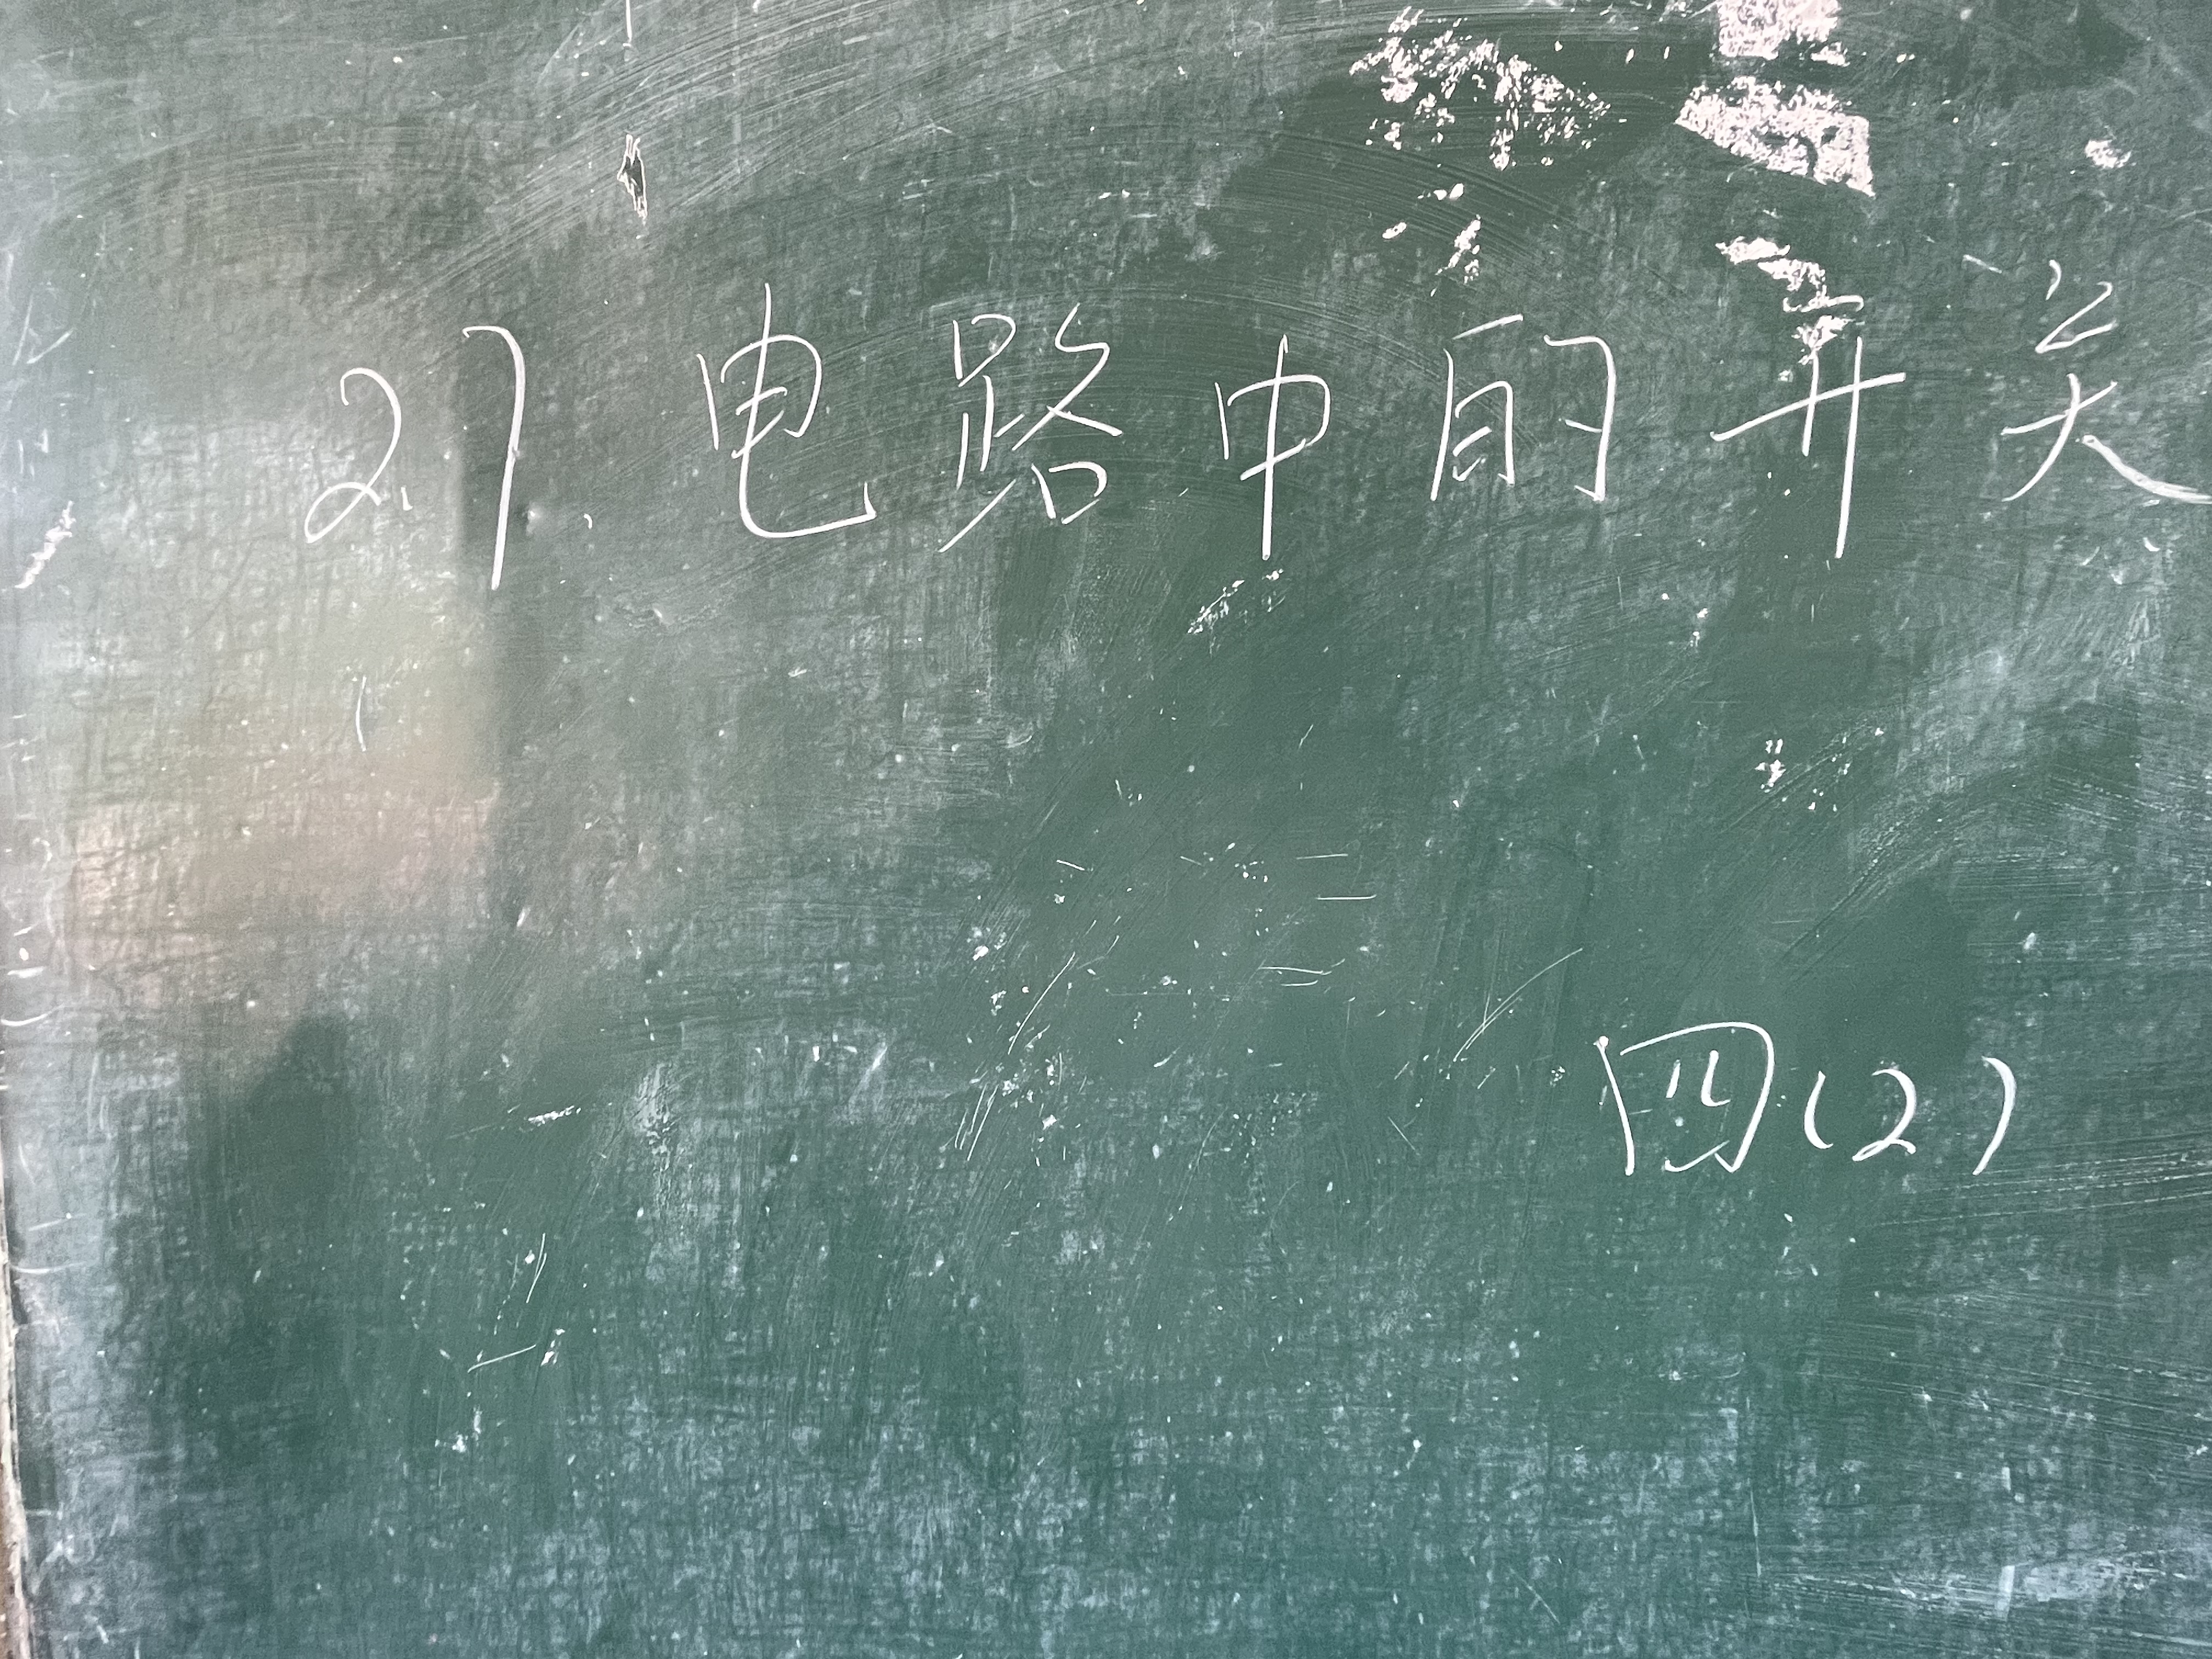 27. 电路中的开关
四(2)